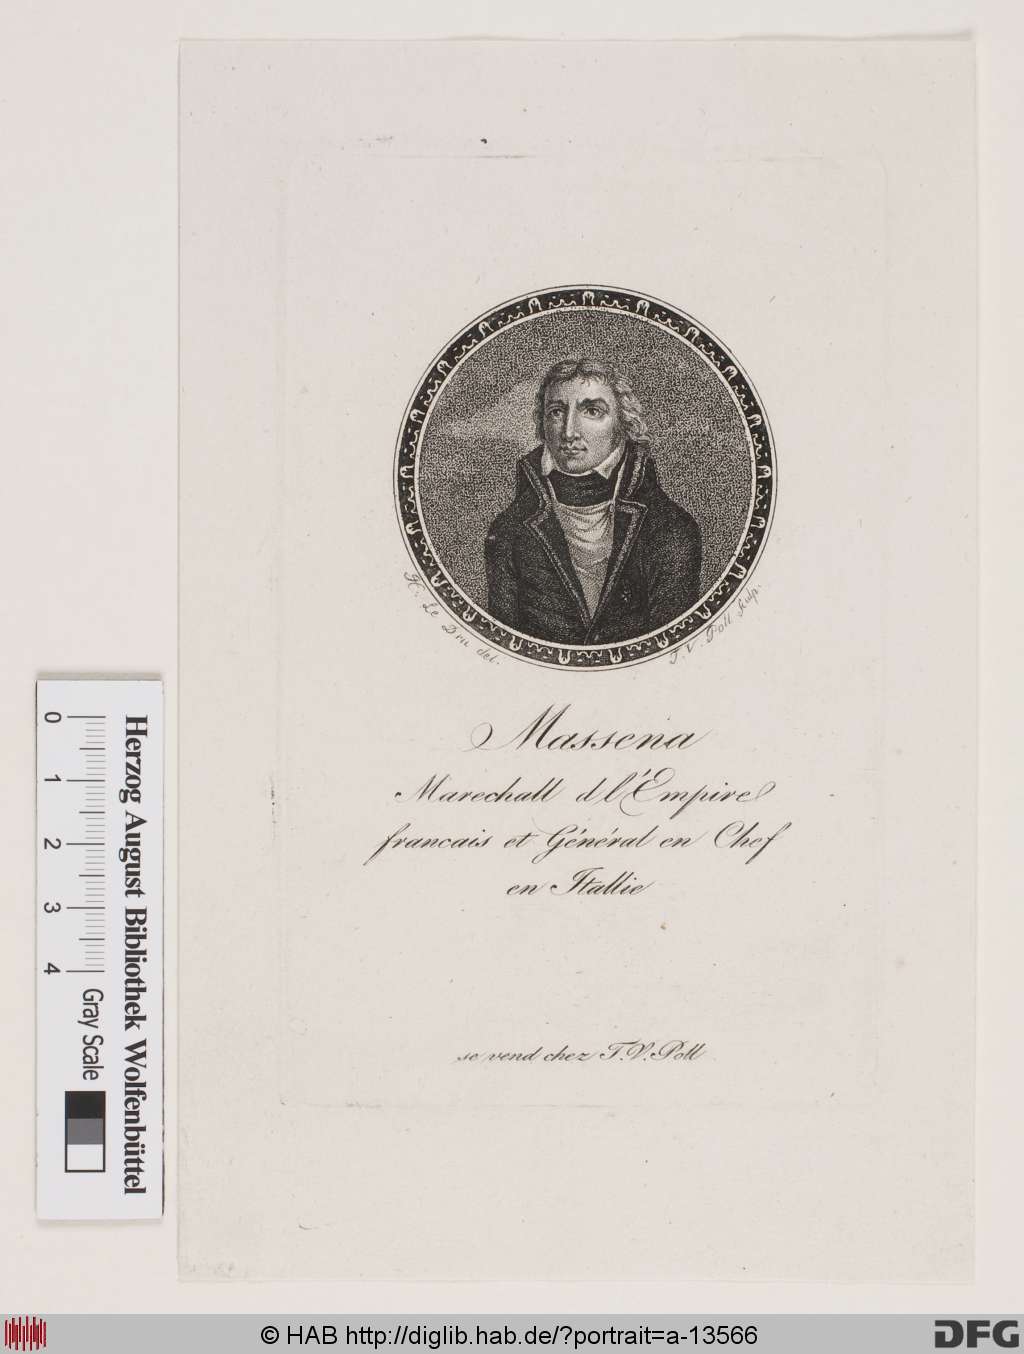 H. Le Dru del.
T. V. Poll sculp.
Massena
Marechall d l'Empire
francais et Général en Chef
en Itallie
se vend chez T. V. Poll
0 1 2 3 4
Gray Scale
Herzog August Bibliothek Wolfenbüttel
© HAB http://diglib.hab.de/?portrait=a-13566
DFG